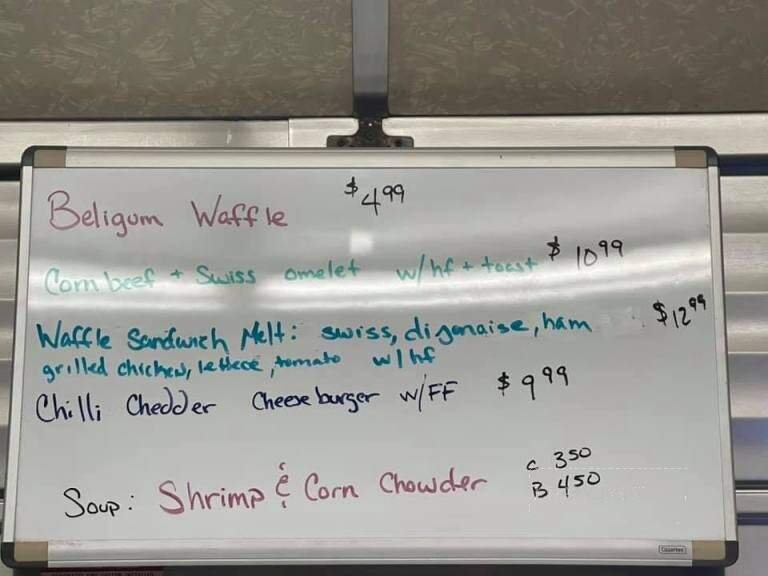 Beligum Waffle $4.99
Corn beef + Swiss omelet w/ hf + toast $10.99
Waffle Sandwich Melt: swiss, dijonaise, ham $12.99
grilled chicken, lettece, tomato w/ hf
Chilli Chedder Cheese burger w/FF $9.99
Soup: Shrimp & Corn Chowder C 350
B 450
Quartet